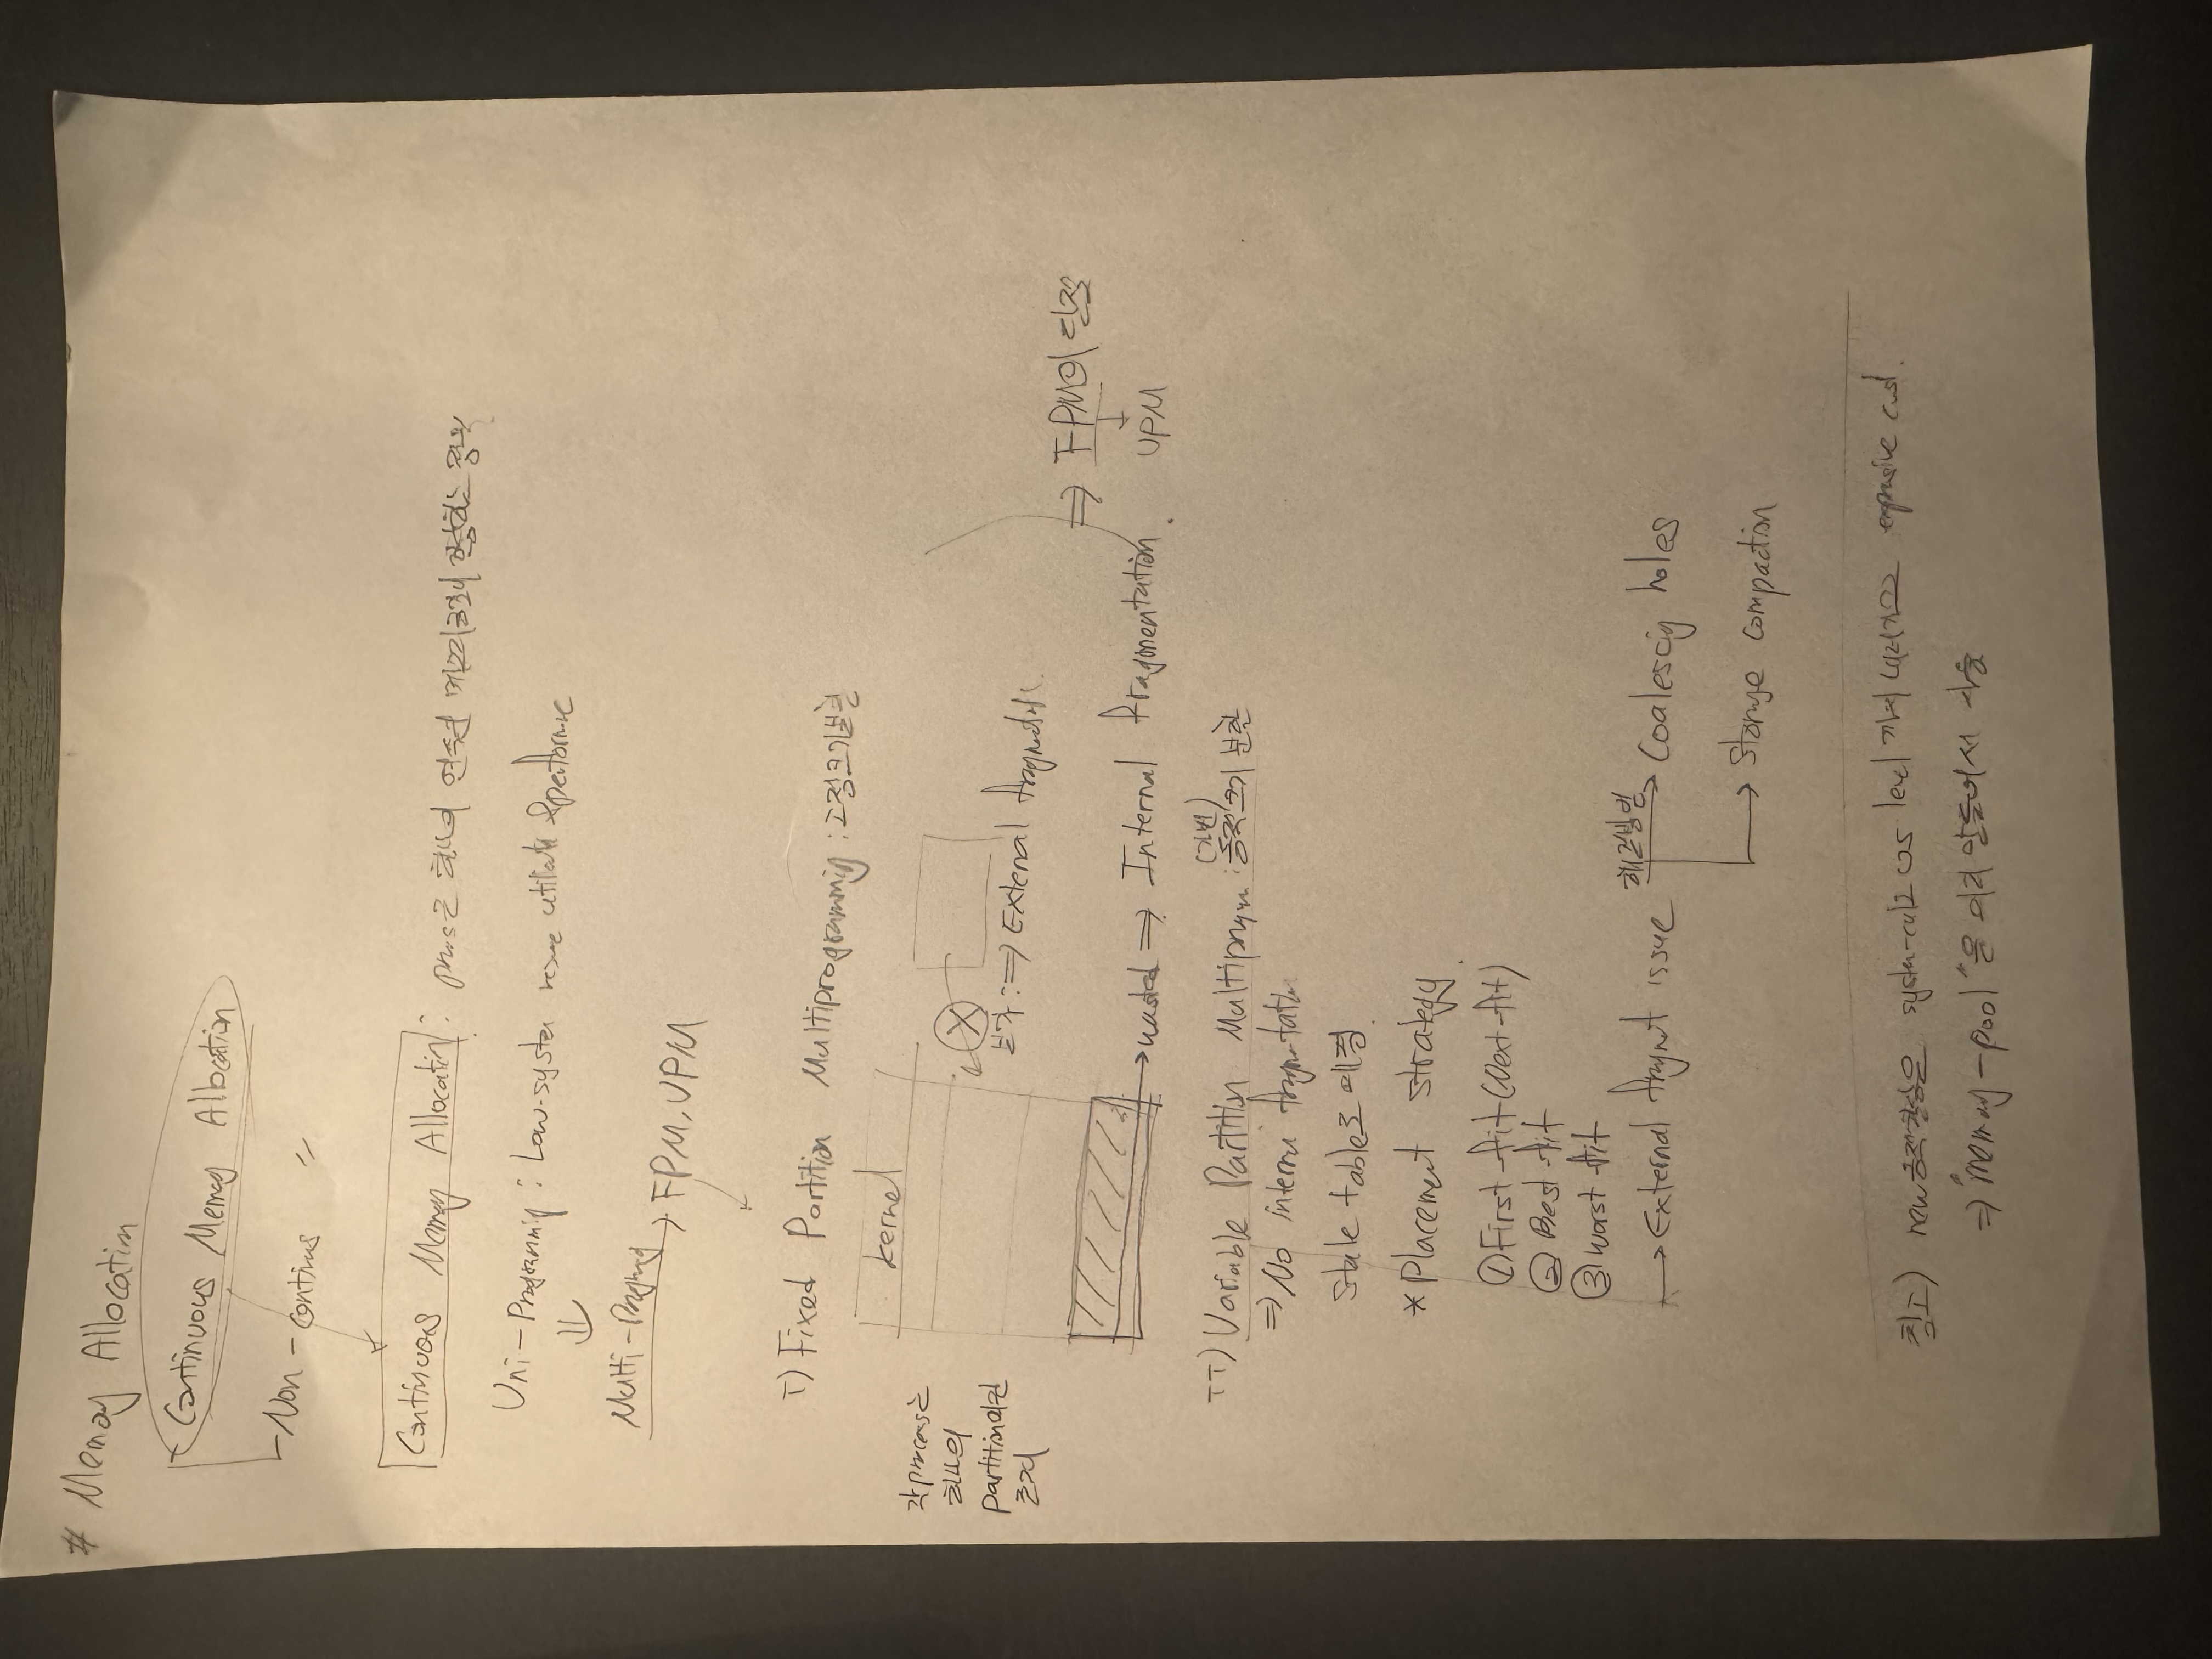 # Memory Allocation
Continuous Memory Allocation
Non-continus "
Continuous Memory Allocation : 하나의 연속된 메모리공간에 할당하는 정책
Uni-Programmig : Low-system utilizati & performance
Multi-
FPM, VPM
I) Fixed Partition Multiprogrammig : 고정크기분할
kernel
각 process는
하나의
partition에만
존재
불가 : ⇒ External
wasted ⇒ Internal fragmentation.
⇒ FPM의 단점
VPM
II) Variable Partition : 동적크기 분할
(가변)
⇒ No
state table로 매핑
* Placement strategy
① First-fit (Next-fit)
② Best-fit
③ worst fit
→ External issue 해결방법 → Coalescig holes
→ Storage compaction
참고) new 동적할당은 OS level 까지 내려가므로 expensive cost.
⇒ "memory-pool"을 미리 만들어서 사용